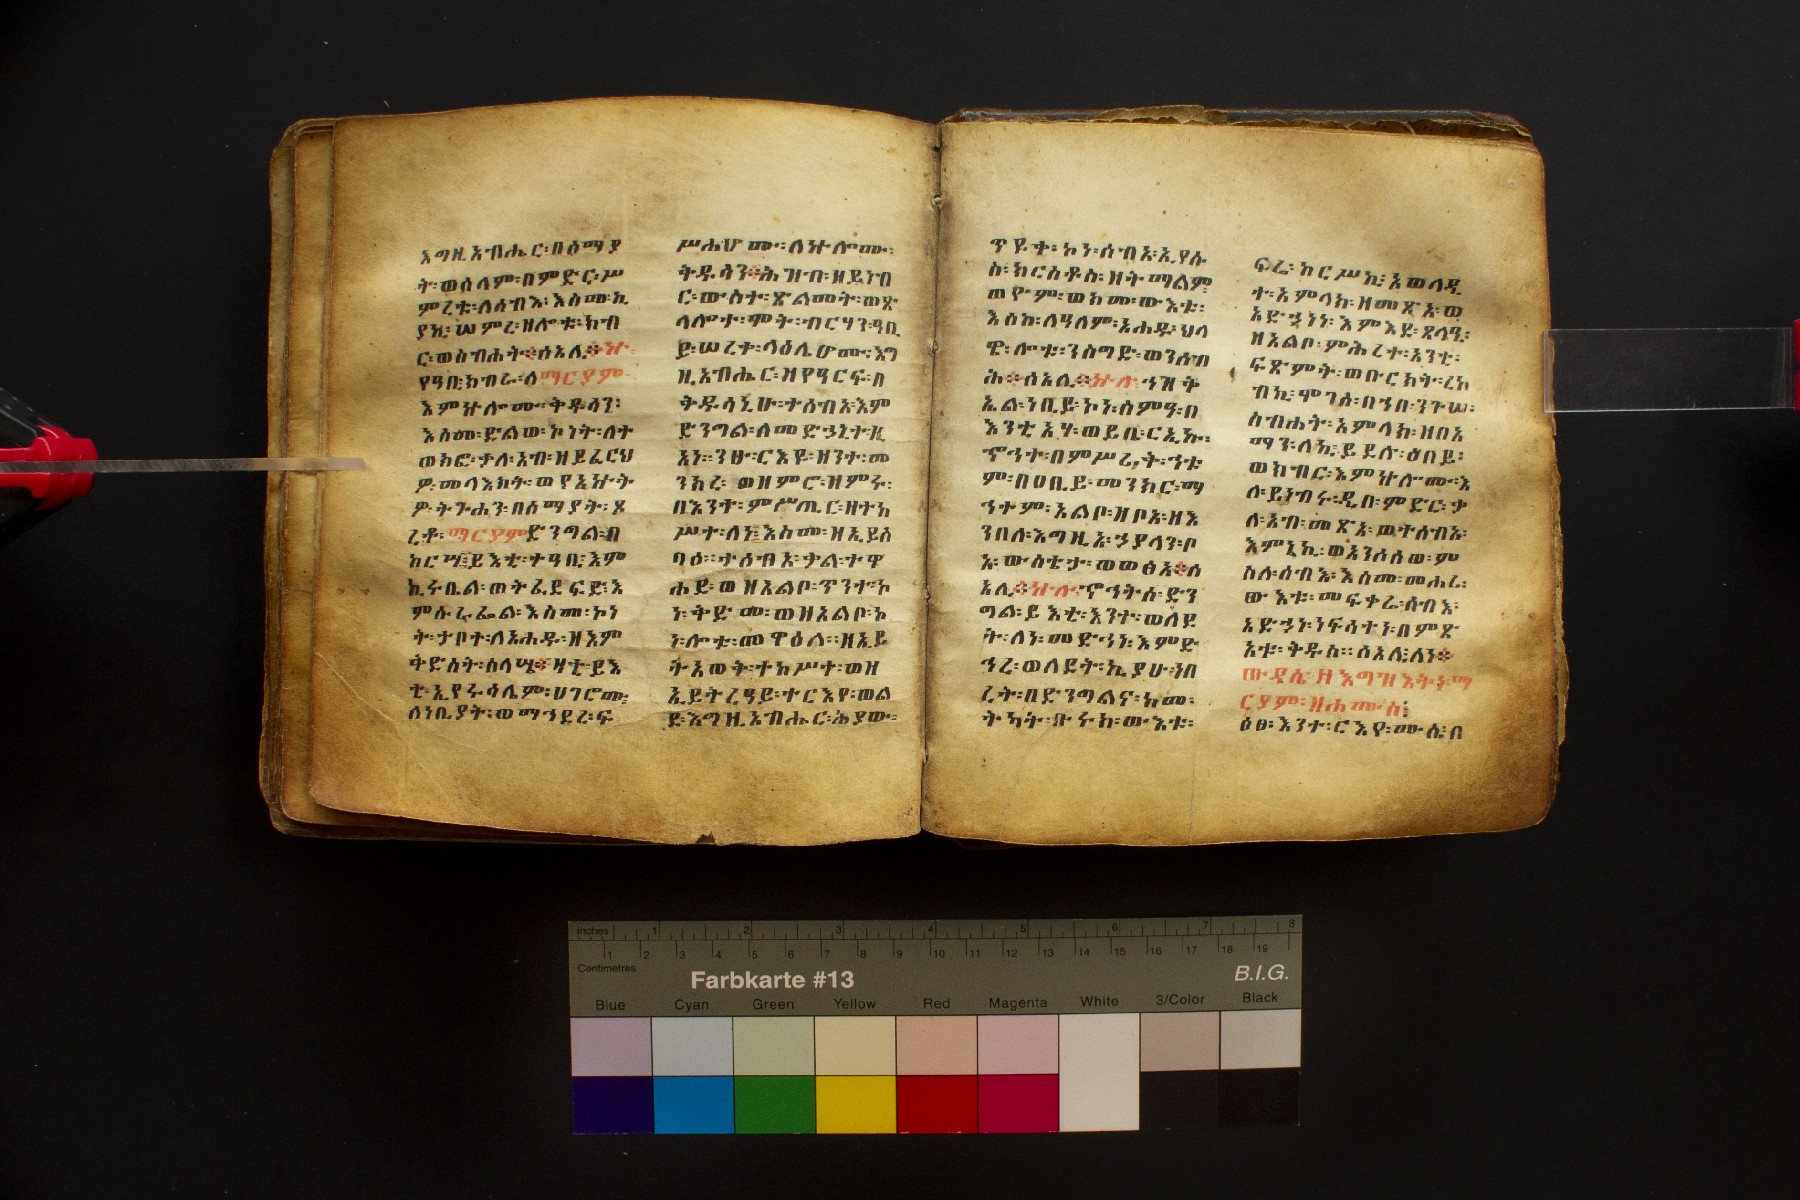 እግዚአብሔር፡በሰማያ
ት፡ወሰላም፡በምድር፡ሥ
ምረቱ፡ለሰብእ፡እስመ፡ኪ
ያኪ፡ሠምረ፡ዘሎቱ፡ክብ
ር፡ወስብሐት፨ሰአሊ፨ዝ፡
የዓቢ፡ክብራ፡ለማርያም፡
እምዝሎሙ፡ቅዱሳን፡
እስመ፡ድልወ፡ኮነት፡ለተ
ወክፎ፡ቃለ፡አብ፡ዘይፈርህ
ዎ፡መላእክት፡ወየኢዝት
ዎ፡ትጉሐን፡በሰማያት፡ጾ
ረቶ፡ማርያም፡ድንግል፡በ
ከርሣ፤ይእቲ፡ተዓቢ፡እም
ኪሩቤል፡ወትፈደፍድ፡እ
ምሱራፌል፡እስመ፡ኮነ
ት፡ታቦተ፡ለአሐዱ፡ዘእም
ቅድስት፡ስላሴ፨ዛቲ፡ይእ
ቲ፡ኢየሩሳሌም፡ሀገሮሙ፡
ለነቢያት፡ወማኅደረ፡ፍ
ሥሐሆሙ፡፡ለዝሎሙ፡
ቅዱሳን፨ሕዝብ፡ዘይነብ
ር፡ውስተ፡ጽልመት፡ወጽ
ላሎተ፡ሞት፡ብርሃን፡ዓቢ
ይ፡ሠረቀ፡ላዕሌሆሙ፡እግ
ዚአብሔር፡ዘየዓርፍ፡በ
ቅዱሳኒሁ፡ተሰብአ፡እም
ድንግል፡ለመድኃኒተ፡ዚ
አነ፡፡ንፁ፡ርእዩ፡ዘንተ፡መ
ንክረ፡ወዘምሮ፡ዘምሩ፡
በእንተ፡ምሥጢር፡ዘተከ
ሥተ፡ለነ፤እስመ፡ዘኢይሰ
ባዕ፡፡ተሰብአ፡ቃል፡ተዋ
ሐደ፡ወዘአልቦ፡ጥንተ፡ኮ
ነ፡ቅድመ፡ወዘአልቦ፡ኮ
ነ፡ሎቱ፡መዋዕለ፡፡ዘኢይ
ትአወቅ፡ተከሥተ፡ወዘ
ኢይትረዓይ፡ተርእየ፡ወል
ደ፡እግዚአብሔር፡ሕያው፡
ጥዩቀ፡ኮነ፡ሰብአ፡ኢየሱ
ስ፡ክርስቶስ፡ዘትማልም
ወዮም፡ወክመ፡ውእቱ፡
እስከ፡ለዓለም፡አሐዱ፡ህላ
ዌ፡ሎቱ፡ንስግድ፡ወንሰብ
ሕ፨ሰአሊ፨ዝሉ፡ኅዝቅ
ኤል፡ነቢይ፡ኮነ፡ስምዓ፡በ
እንቲአሃ፡ወይቤ፡ርኢኩ፡
ኆኅተ፡በምሥራቅ፡ኅቱ
ም፡በዐቢይ፡መንክር፡ማ
ኅተም፡አልቦ፡ዘቦአ፡ዘእ
ንበለ፡እግዚአ፡ኃያላን፡ቦ
አ፡ውስቴታ፡ወወፅአ፨ሰ
አሊ፨ዝሉ፡ኆኅትሰ፡ድን
ግል፡ይእቲ፡እንተ፡ወለደ
ት፡ለነ፡መድኅነ፡እምድ
ኅረ፡ወለደት፡ኪያሁ፡ነበ
ረት፡በድንግልና፡ከመ፡
ትካት፡ቡሩክ፡ውእቱ፡
ፍሬ፡ከርሥኪ፡እወላዲ
ተ፡አምላክ፡ዘመጽአ፡ወ
አድኃነነ፡እምእደ፡ጸላዒ፡
ዘአልቦ፡ምሕረተ፡አንቲ፡
ፍጽምት፡ወቡርክት፡ረከ
ብኪ፡ሞገሰ፡በኀበ፡ንጉሠ፡
ስብሐት፡አምላክ፡ዘበአ
ማን፡ለኪ፡ይደሉ፡ዕበይ፡
ወክብር፡እምዝሎሙ፡እ
ለ፡ይነብሩ፡ዲበ፡ምድር፡ቃ
ለ፡አብ፡መጽአ፡ወተሰብአ፡
እምኔኪ፡ወአንሶሰወ፡ም
ስለ፡ሰብእ፡እስመ፡መሐሪ፡
ውእቱ፡መፍቀሬ፡ሰብእ፡
አድኃነ፡ነፍሳተነ፡በምጽ
አቱ፡ቅዱስ፡፡ሰአሊ፡ለነ፨
ውዳሴ፡ዘእግዝእትነ፡ማ
ርያም፡ዘሐሙስ፤
ዕፀ፡እንተ፡ርእየ፡ሙሴ፡በ
Inches 1 2 3 4 5 6 7 8
1 2 3 4 5 6 7 8 9 10 11 12 13 14 15 16 17 18 19
Centimetres
Farbkarte #13 B.I.G.
Blue Cyan Green Yellow Red Magenta White 3/Color Black